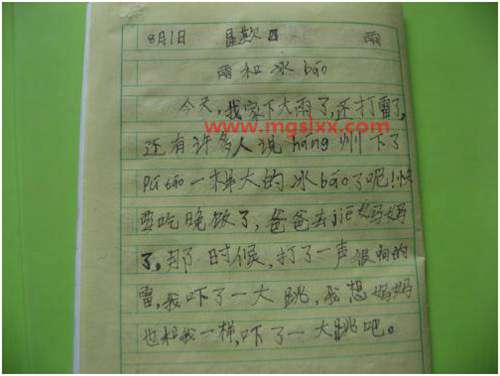 8月1日 星期日 雨
雨和冰báo
今天，我家下大雨了，还打雷了，
www.mgslxx.com
还有许多人说háng州下了
Pú táo一样大的冰báo了呢！快
要吃晚饭了，爸爸去jiē妈妈
了，那时候，打了一声很响的
雷，我吓了一大跳，我想妈妈
也和我一样，吓了一大跳吧。